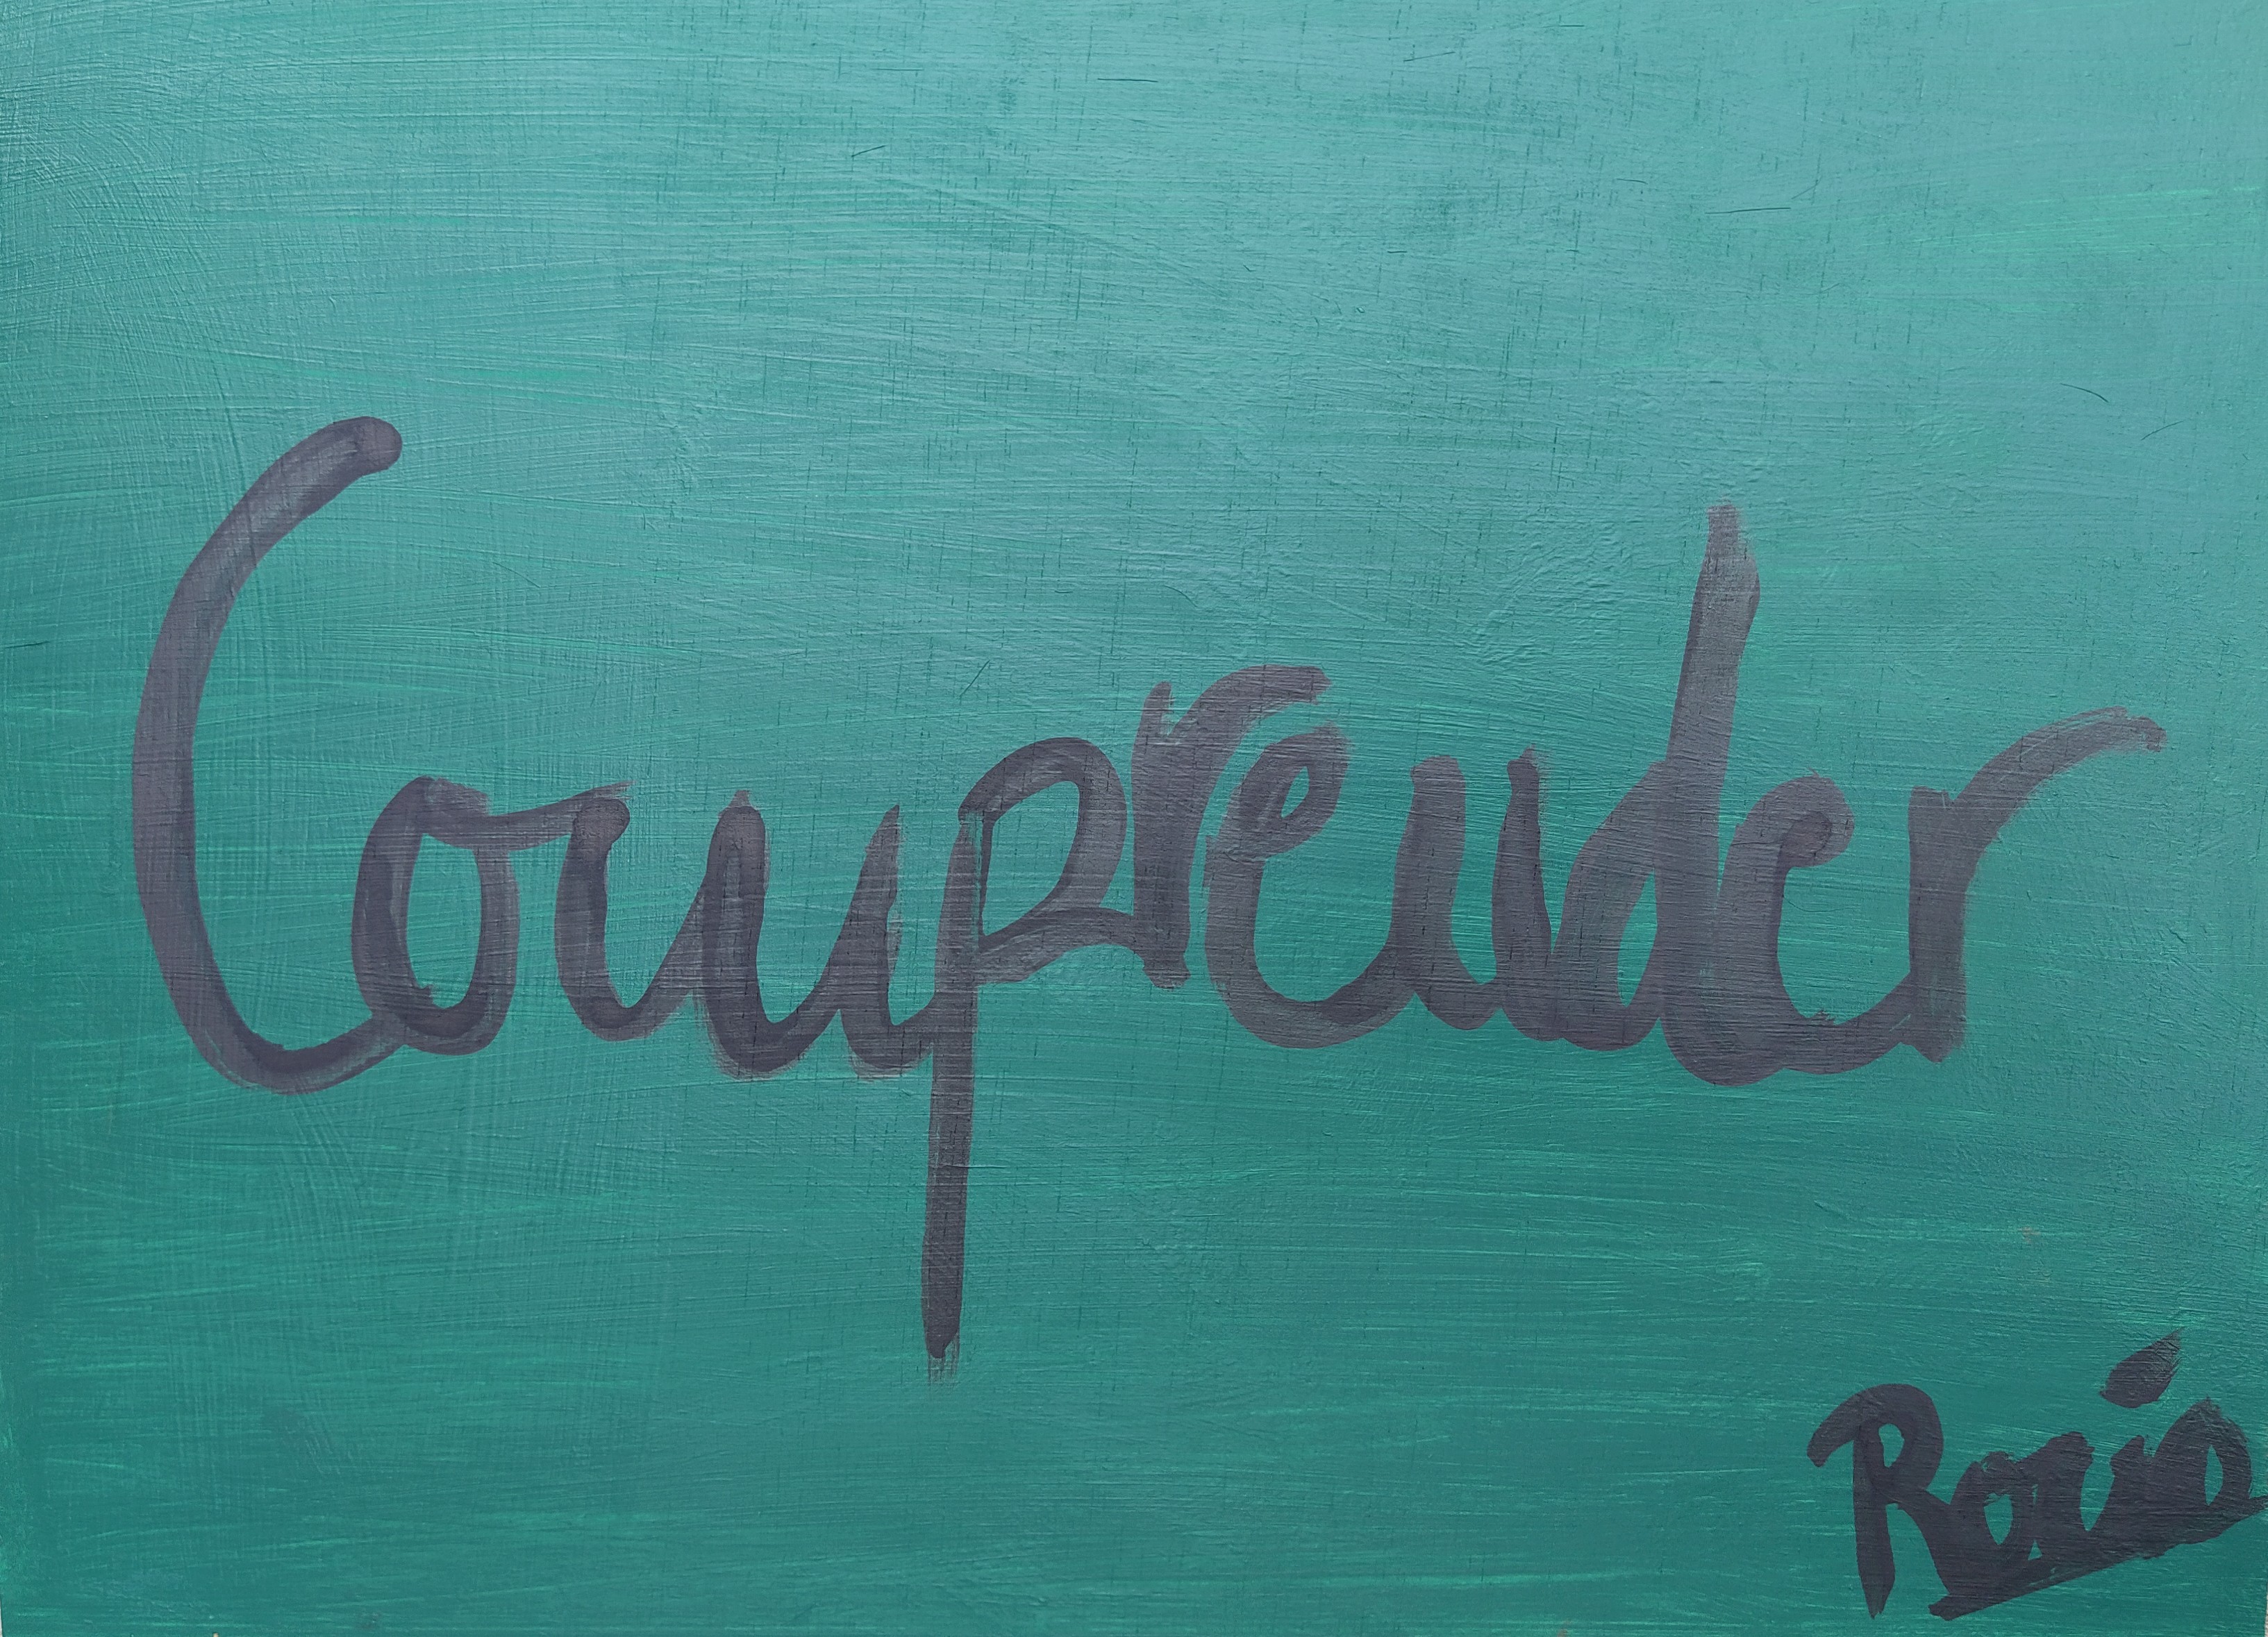 Comprender
Rocío